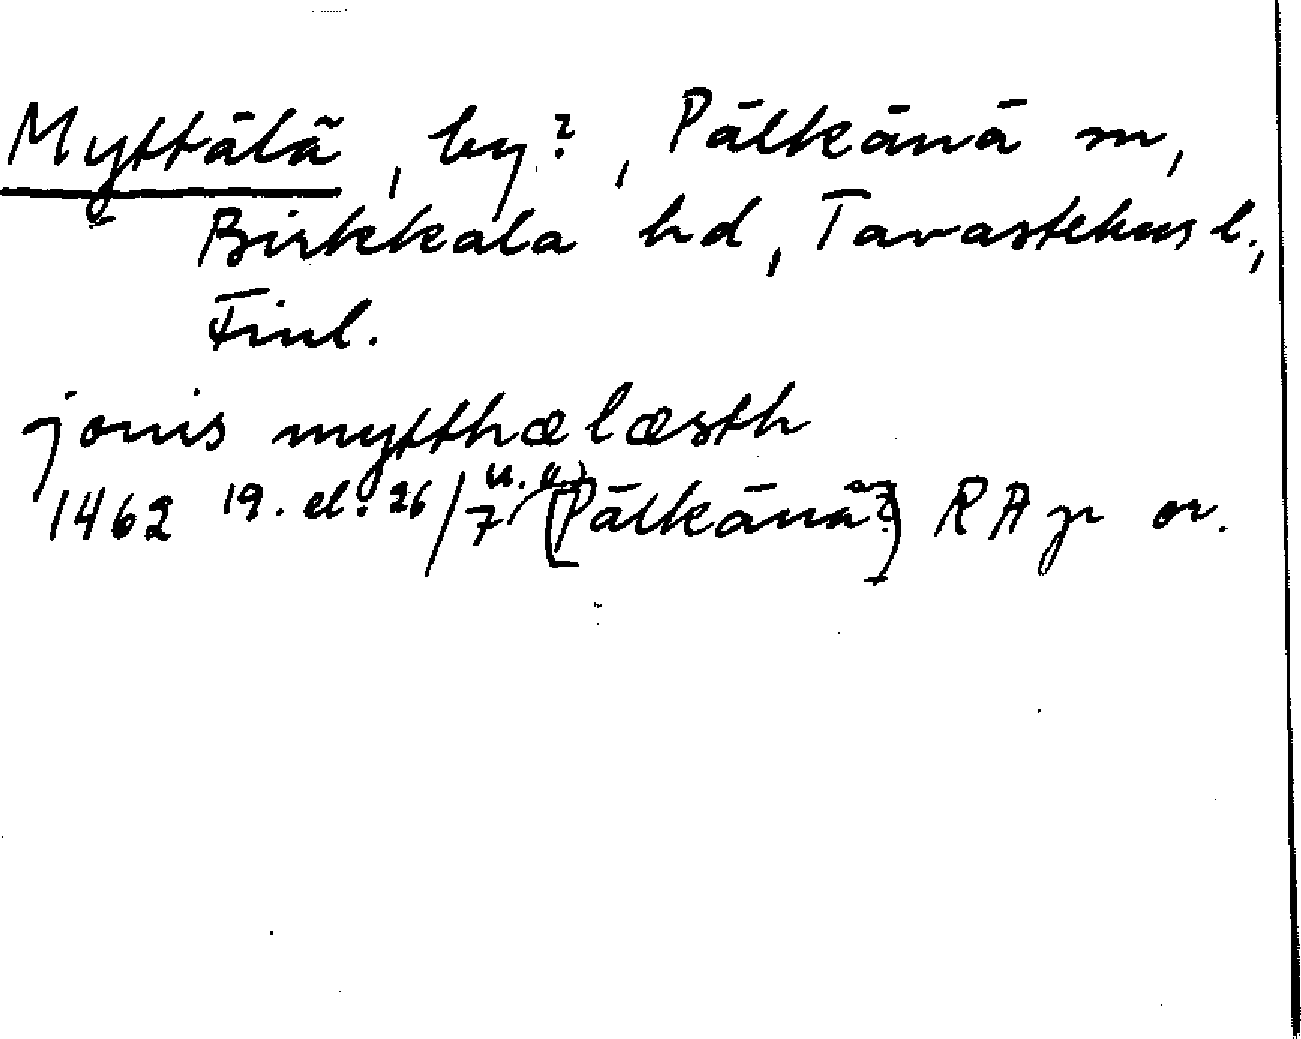 Myttälä, by?, Pälkänä sn,
Birkkala hd, Tavastehus l.,
Finl.
jonis mytthælæsth
1462 19. el. 26/7 u. o. (Pälkänä?) RA p or.